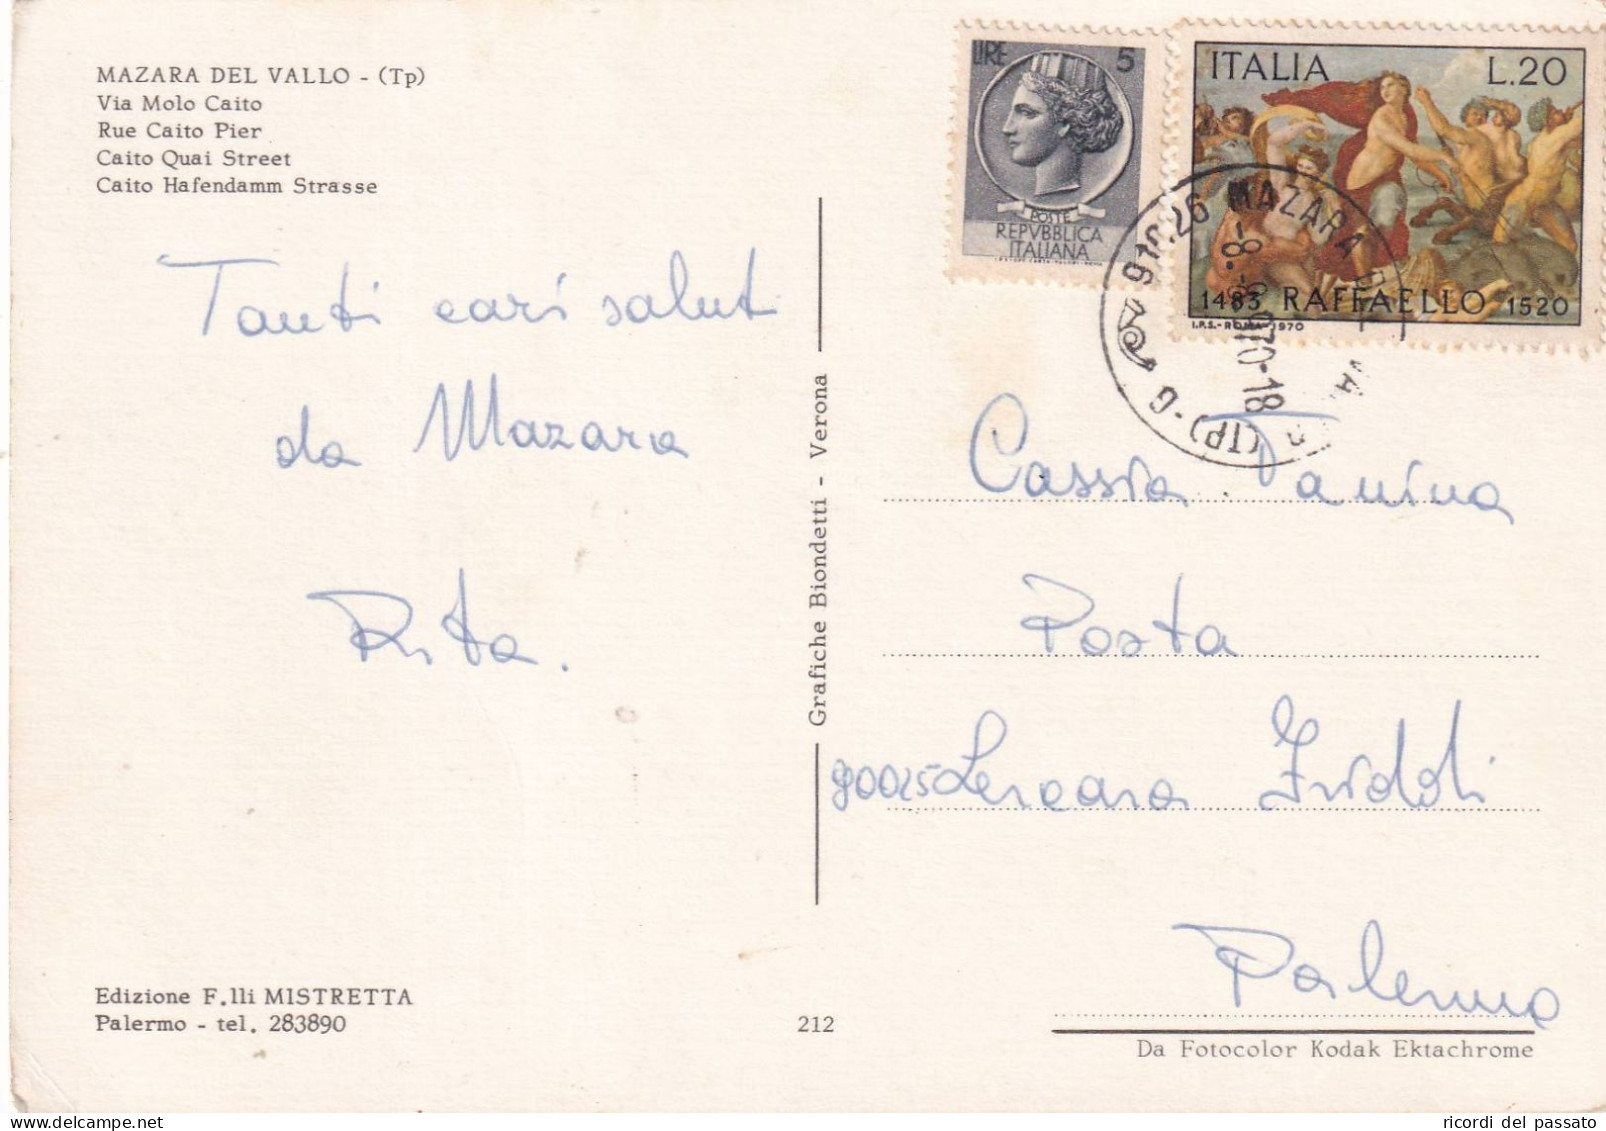 MAZARA DEL VALLO - (Tp)
Via Molo Caito
Rue Caito Pier
Caito Quai Street
Caito Hafendamm Strasse
Tanti cari saluti
da Mazara
Rita.
Edizione F.lli MISTRETTA
Palermo - tel. 283890
Grafiche Biondetti - Verona
212
LIRE 5
POSTE
REPVBBLICA
ITALIANA
ITALIA L.20
1483 RAFFAELLO 1520
I.P.S.-ROMA-1970
MAZARA
(TP)-G
970-18
Cassia Tanina
Posta
90025 Lercara Friddi
Palermo
Da Fotocolor Kodak Ektachrome
ricordi del passato